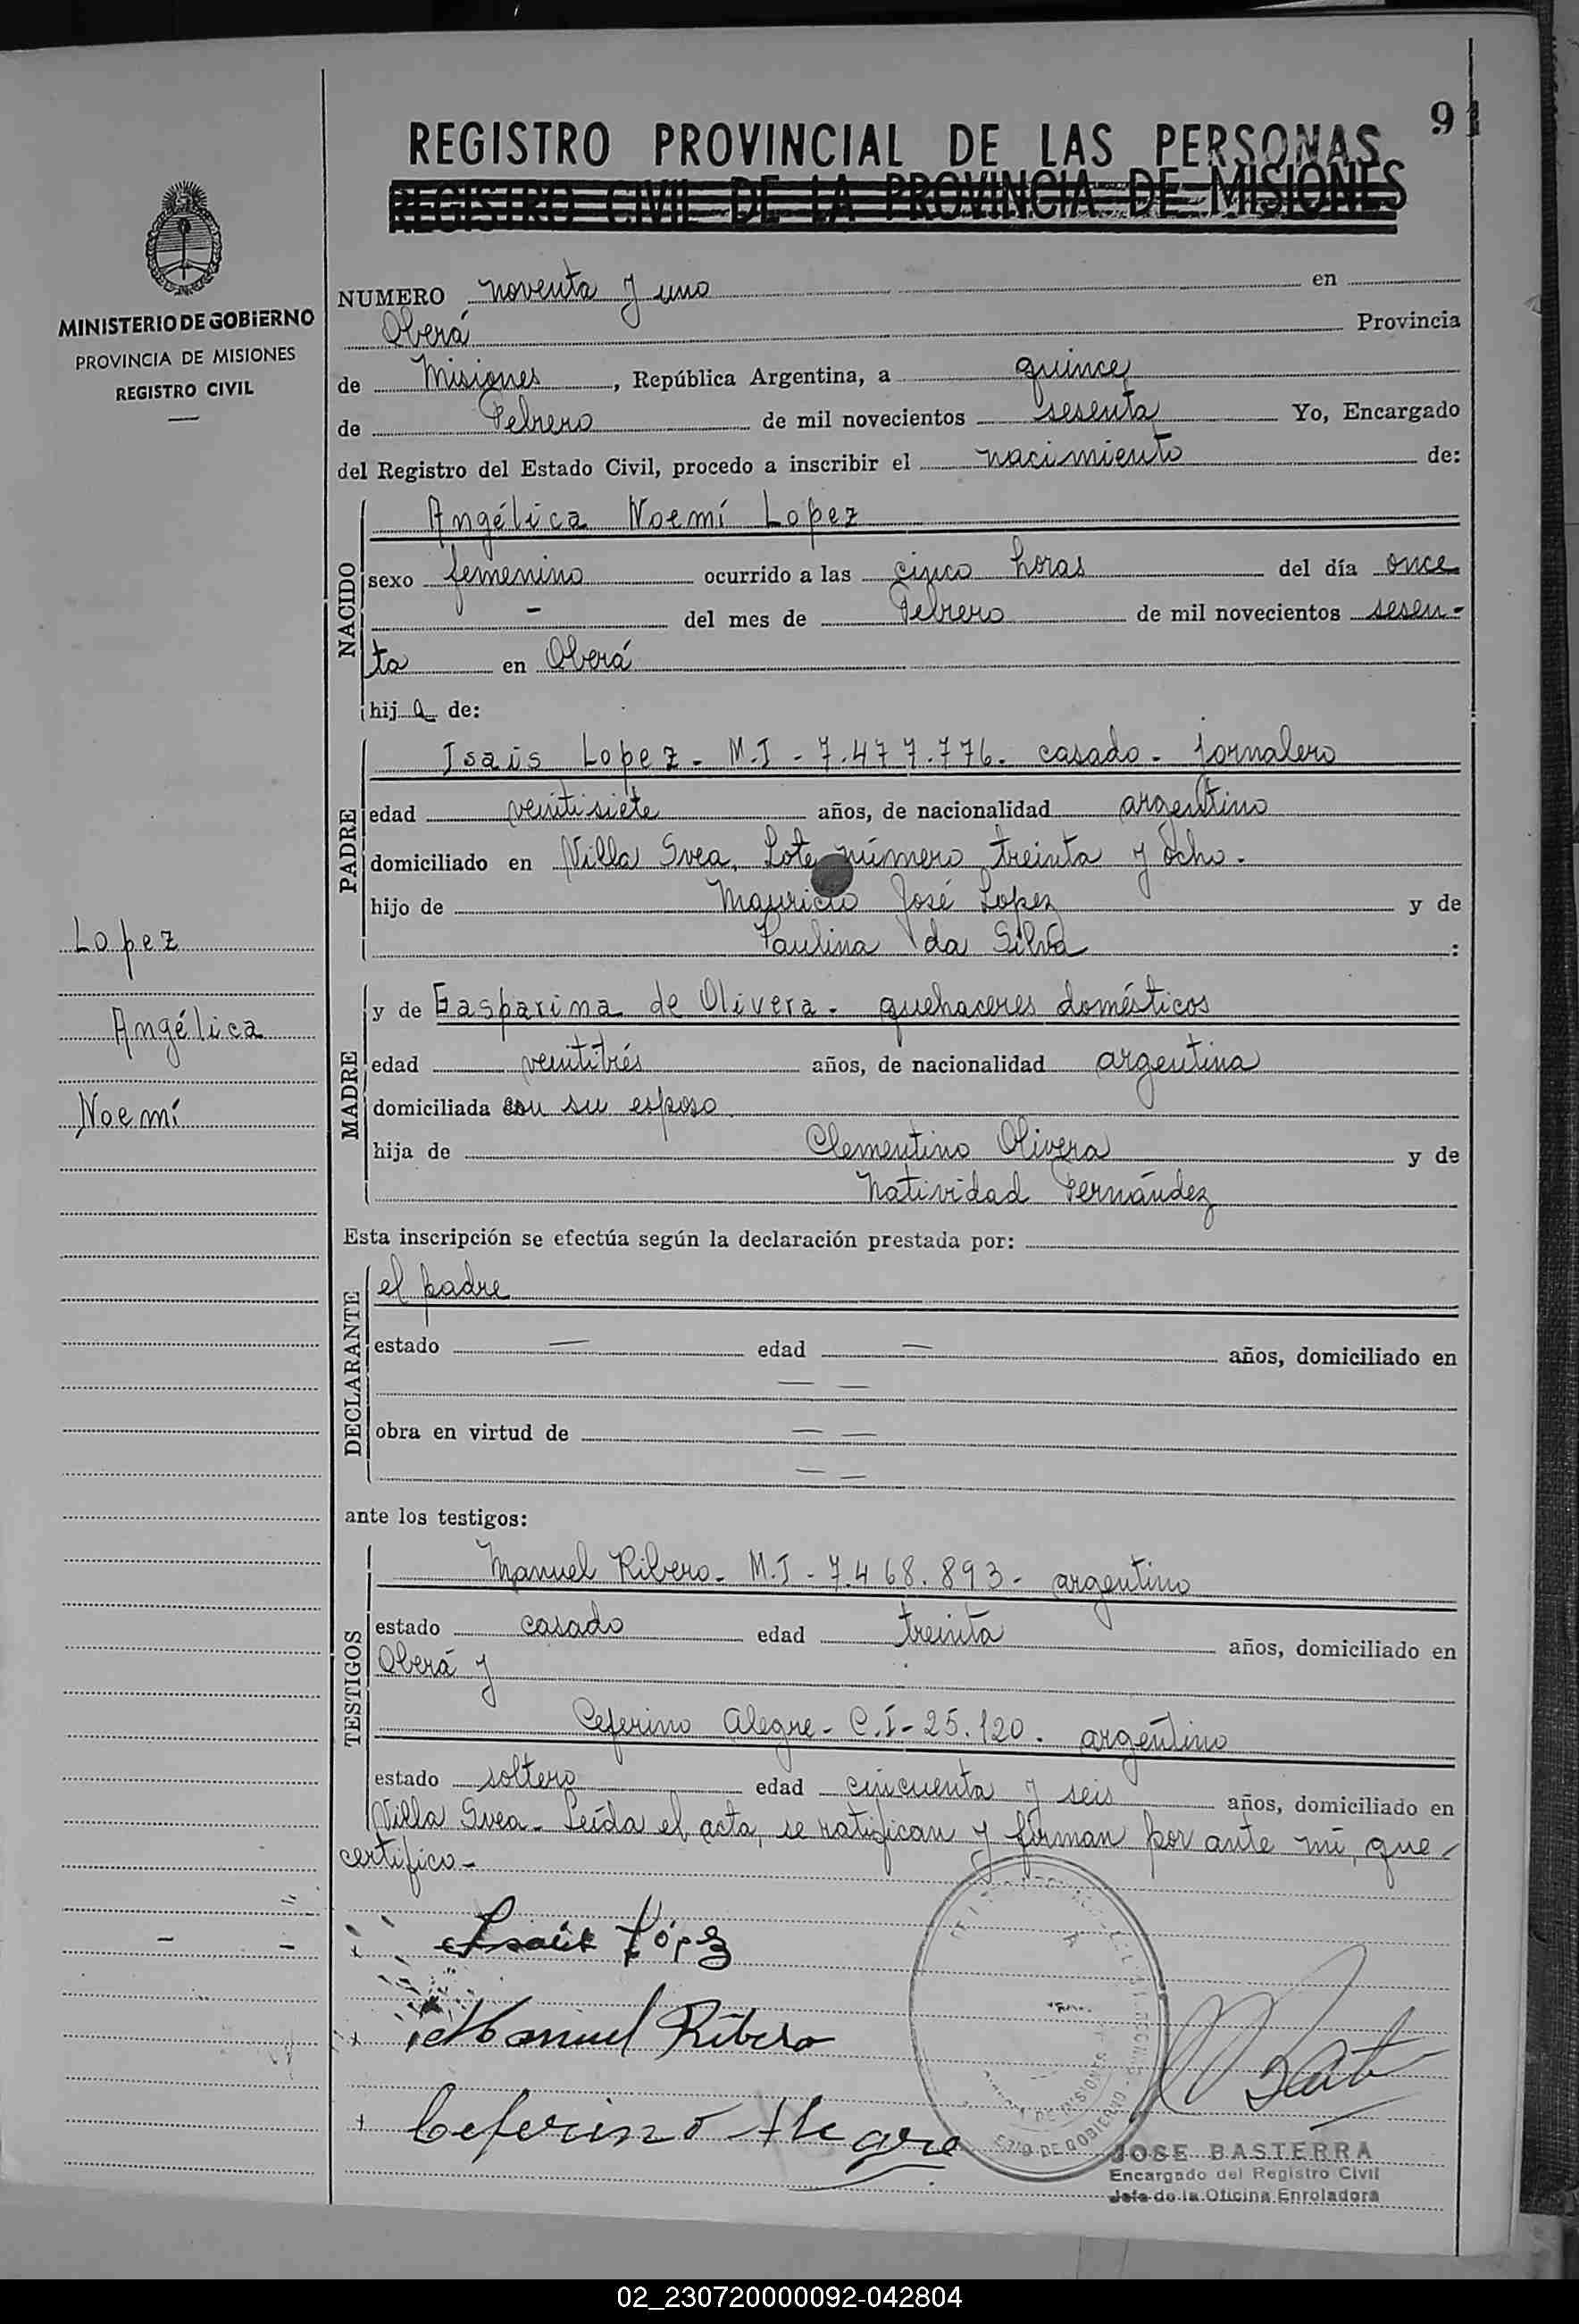 91
REGISTRO PROVINCIAL DE LAS PERSONAS
REGISTRO CIVIL DE LA PROVINCIA DE MISIONES
MINISTERIO DE GOBIERNO
PROVINCIA DE MISIONES
REGISTRO CIVIL
NUMERO noventa y uno en
Oberá Provincia
de Misiones, República Argentina, a quince
de Febrero de mil novecientos sesenta Yo, Encargado
del Registro del Estado Civil, procedo a inscribir el nacimiento de:
NACIDO
Angélica Noemí Lopez
sexo femenino ocurrido a las cinco horas del día once
- del mes de Febrero de mil novecientos sesen-
ta en Oberá
hija de:
PADRE
Isaís Lopez - M.I - 7.477.776. casado - jornalero
edad veintisiete años, de nacionalidad argentino
domiciliado en Villa Svea, Lote número treinta y ocho.
hijo de Mauricio José Lopez y de
Paulina da Silva :
Lopez
Angélica
Noemí
MADRE
y de Gasparina de Olivera - quehaceres domésticos
edad veintitrés años, de nacionalidad argentina
domiciliada con su esposo
hija de Clementino Olivera y de
Natividad Fernández
Esta inscripción se efectúa según la declaración prestada por:
DECLARANTE
el padre
estado — edad — años, domiciliado en
— —
obra en virtud de — —
— —
ante los testigos:
TESTIGOS
Manuel Ribero - M.I - 7.468.893 - argentino
estado casado edad treinta años, domiciliado en
Oberá y
Ceferino Alegre - C.I - 25.120. argentino
estado soltero edad cincuenta y seis años, domiciliado en
Villa Svea - Leída el acta, se ratifican y firman por ante mí, que
certifico -
Isaís López
Manuel Ribero
Ceferino Alegre
JOSE BASTERRA
Encargado del Registro Civil
Jefe de la Oficina Enroladora
02_230720000092-042804